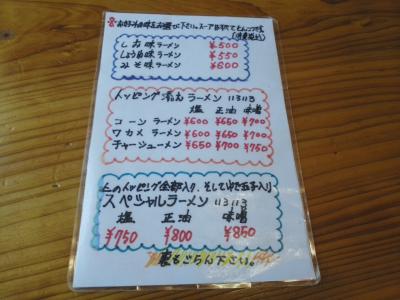 お好きな味をお選び下さい。スープは全てとんこつです
しお味ラーメン ¥500
しょうゆ味ラーメン ¥550
みそ味ラーメン ¥600
トッピング満丸ラーメン 113113
塩 正油 味噌
コーンラーメン ¥600 ¥650 ¥700
ワカメラーメン ¥600 ¥650 ¥700
チャーシューメン ¥650 ¥700 ¥750
上のトッピング全部入り、そしてゆで玉子入り
スペシャルラーメン 113113
塩 正油 味噌
¥750 ¥800 ¥850
裏もごらん下さい。